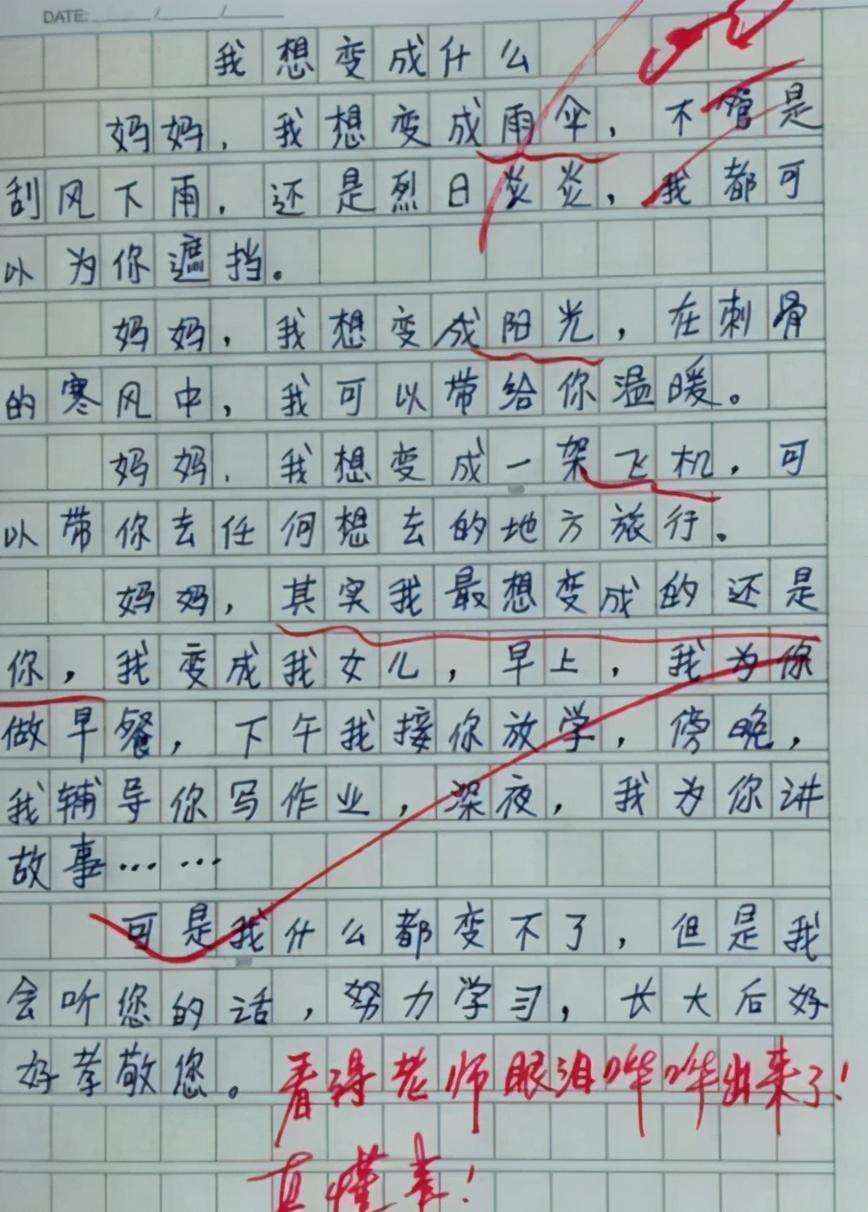 DATE: / /
我想变成什么
妈妈，我想变成雨伞，不管是
刮风下雨，还是烈日炎炎，我都可
以为你遮挡。
妈妈，我想变成阳光，在刺骨
的寒风中，我可以带给你温暖。
妈妈，我想变成一架飞机，可
以带你去任何想去的地方旅行。
妈妈，其实我最想变成的还是
你，我变成我女儿，早上，我为你
做早餐，下午我接你放学，傍晚，
我辅导你写作业，深夜，我为你讲
故事……
可是我什么都变不了，但是我
会听您的话，努力学习，长大后好
好孝敬您。看得老师眼泪哗哗出来了！
真懂事！